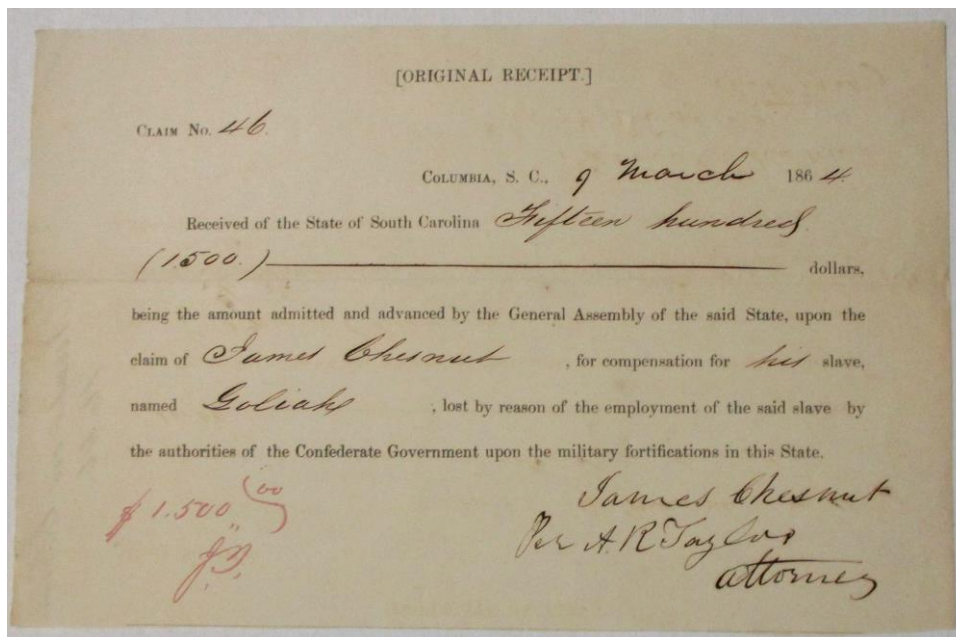 [ORIGINAL RECEIPT.]
CLAIM No. 46.
COLUMBIA, S. C., 9 March 1864.
Received of the State of South Carolina Fifteen hundred
(1.500.) dollars,
being the amount admitted and advanced by the General Assembly of the said State, upon the
claim of James Chesnut , for compensation for his slave,
named Goliah , lost by reason of the employment of the said slave by
the authorities of the Confederate Government upon the military fortifications in this State.
$1.500 00
James Chesnut
Per A. R Taylor
attorney